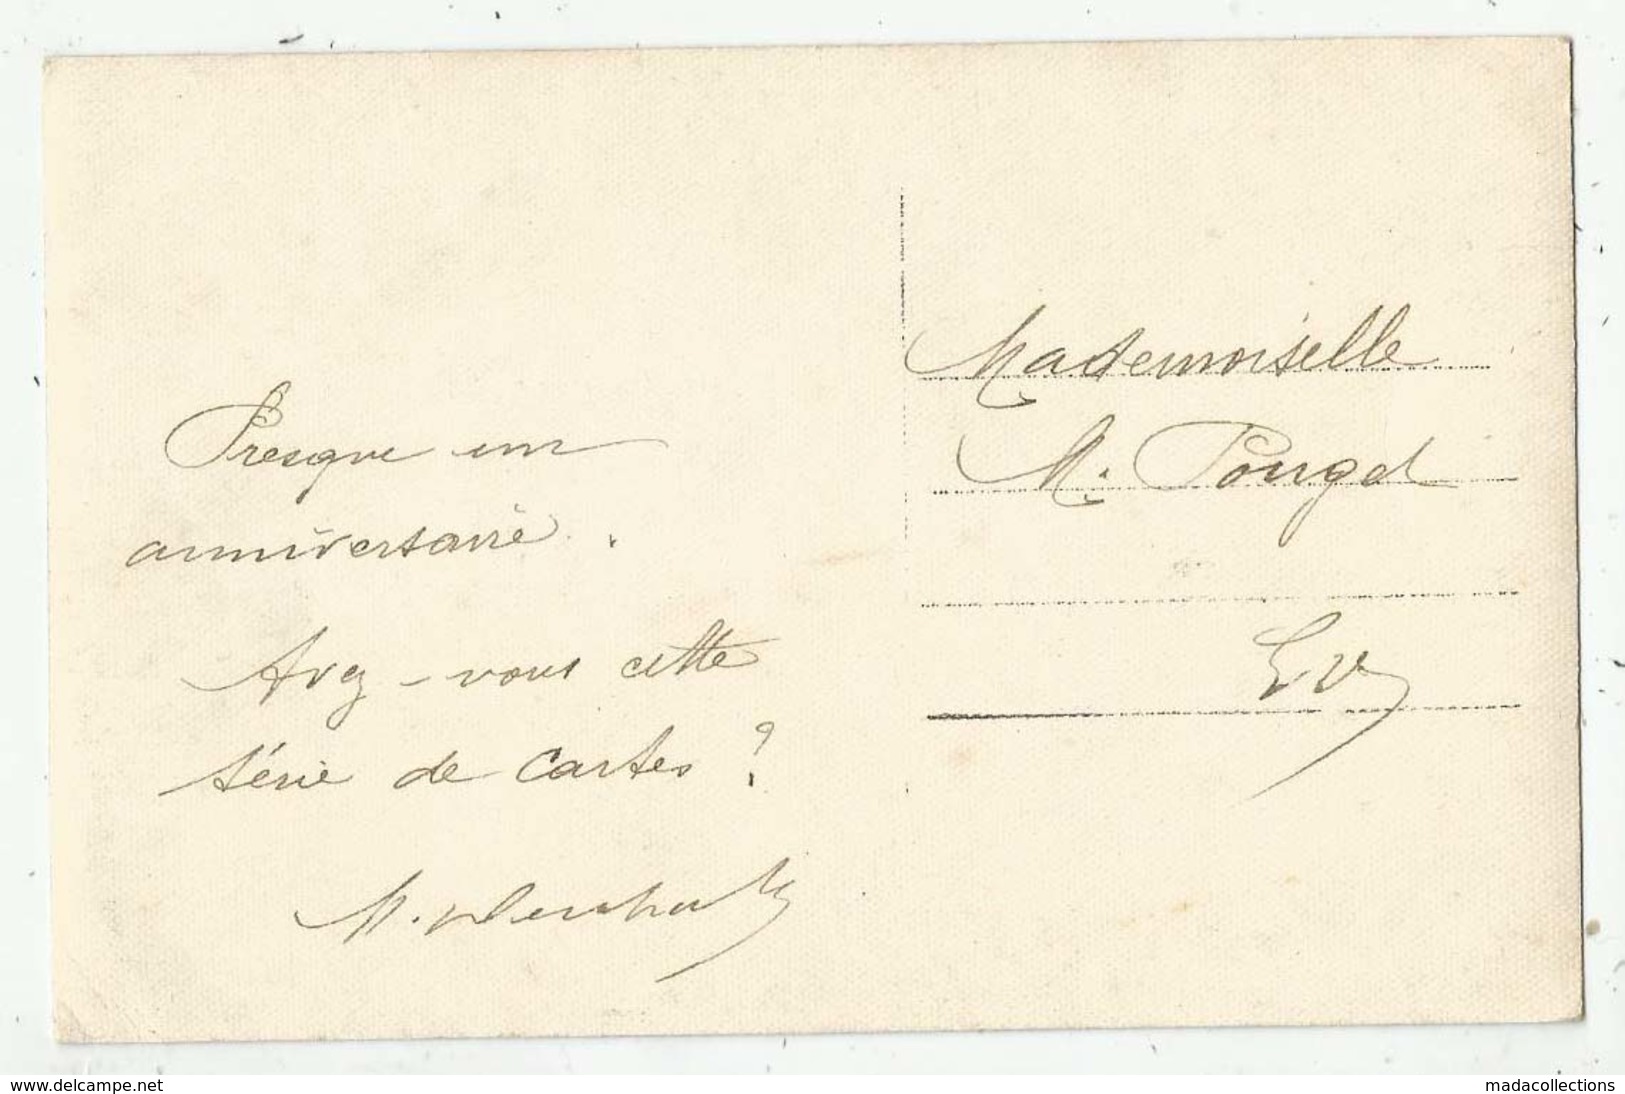 Presque un
anniversaire.
Avez-vous cette
série de cartes ?
M.
Mademoiselle
M. Pouget
www.delcampe.net
madacollections